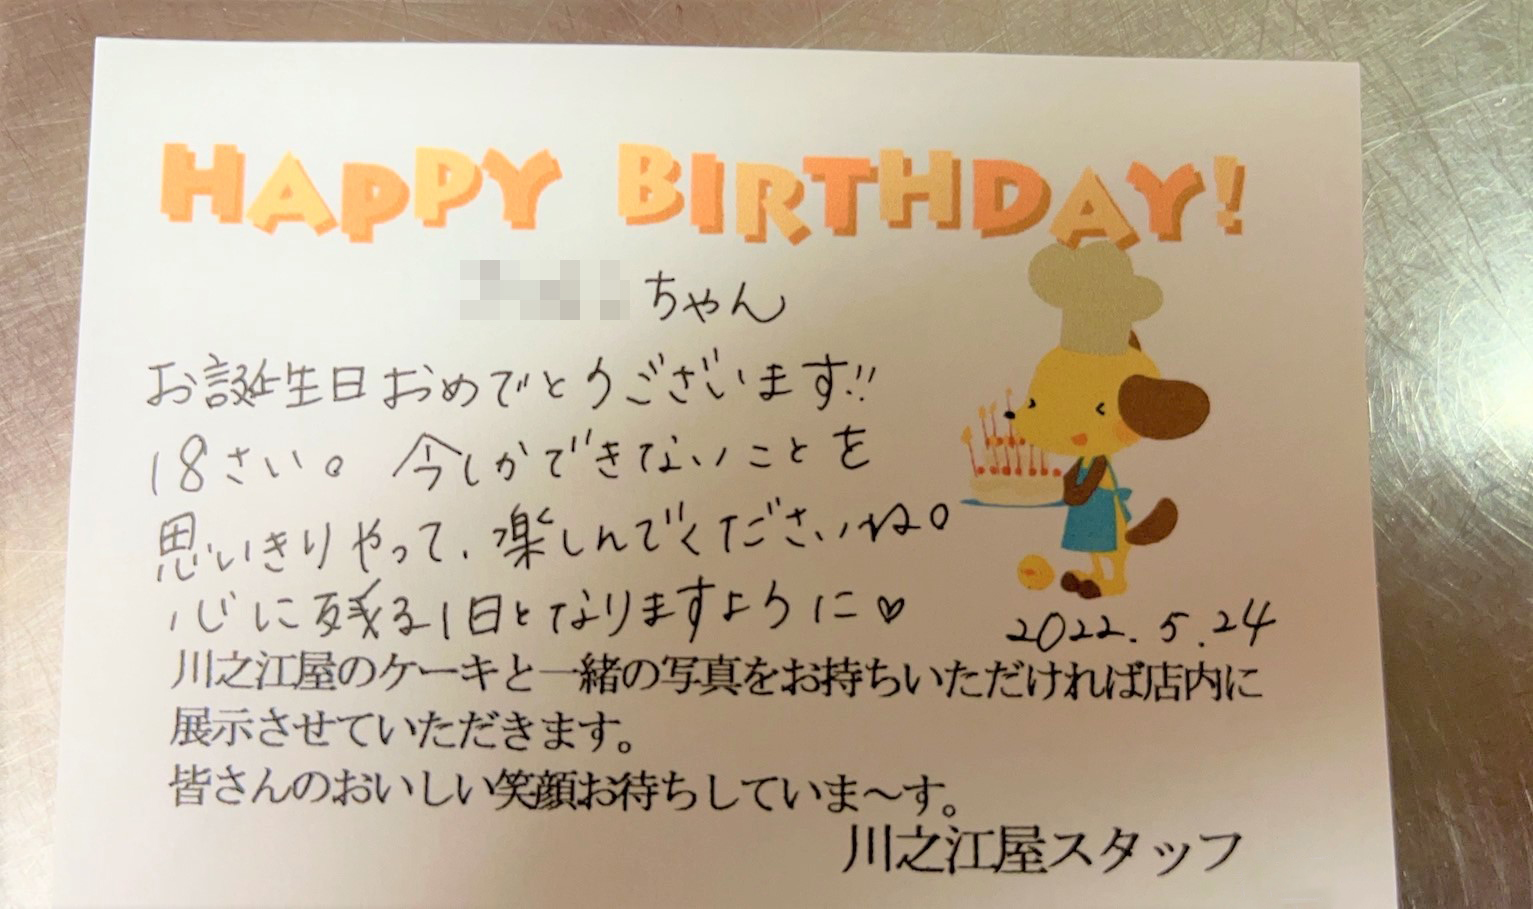 HAPPY BIRTHDAY!
ちゃん
お誕生日おめでとうございます!!
18さい。 今しかできないことを
思いきりやって、楽しんでくださいね。
心に残る1日となりますように♡
2022.5.24
川之江屋のケーキと一緒の写真をお持ちいただければ店内に
展示させていただきます。
皆さんのおいしい笑顔お待ちしていま～す。
川之江屋スタッフ